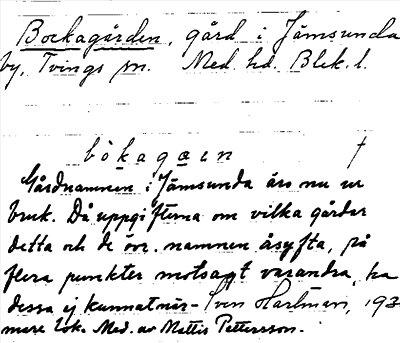 Bockagården, gård i Jämsunda
by, Tvings sn. Med. hd. Blek. l.
bòkagaen †
Gårdnamnen i Jämsunda äro nu ur
bruk. Då uppgifterna om vilka gårdar
detta och de öv. namnen åsyfta, på
flera punkter motsagt varandra, ha
dessa ej kunnat när-
Sven Hartman, 193
mare lok. Med. av Mattis Pettersson.